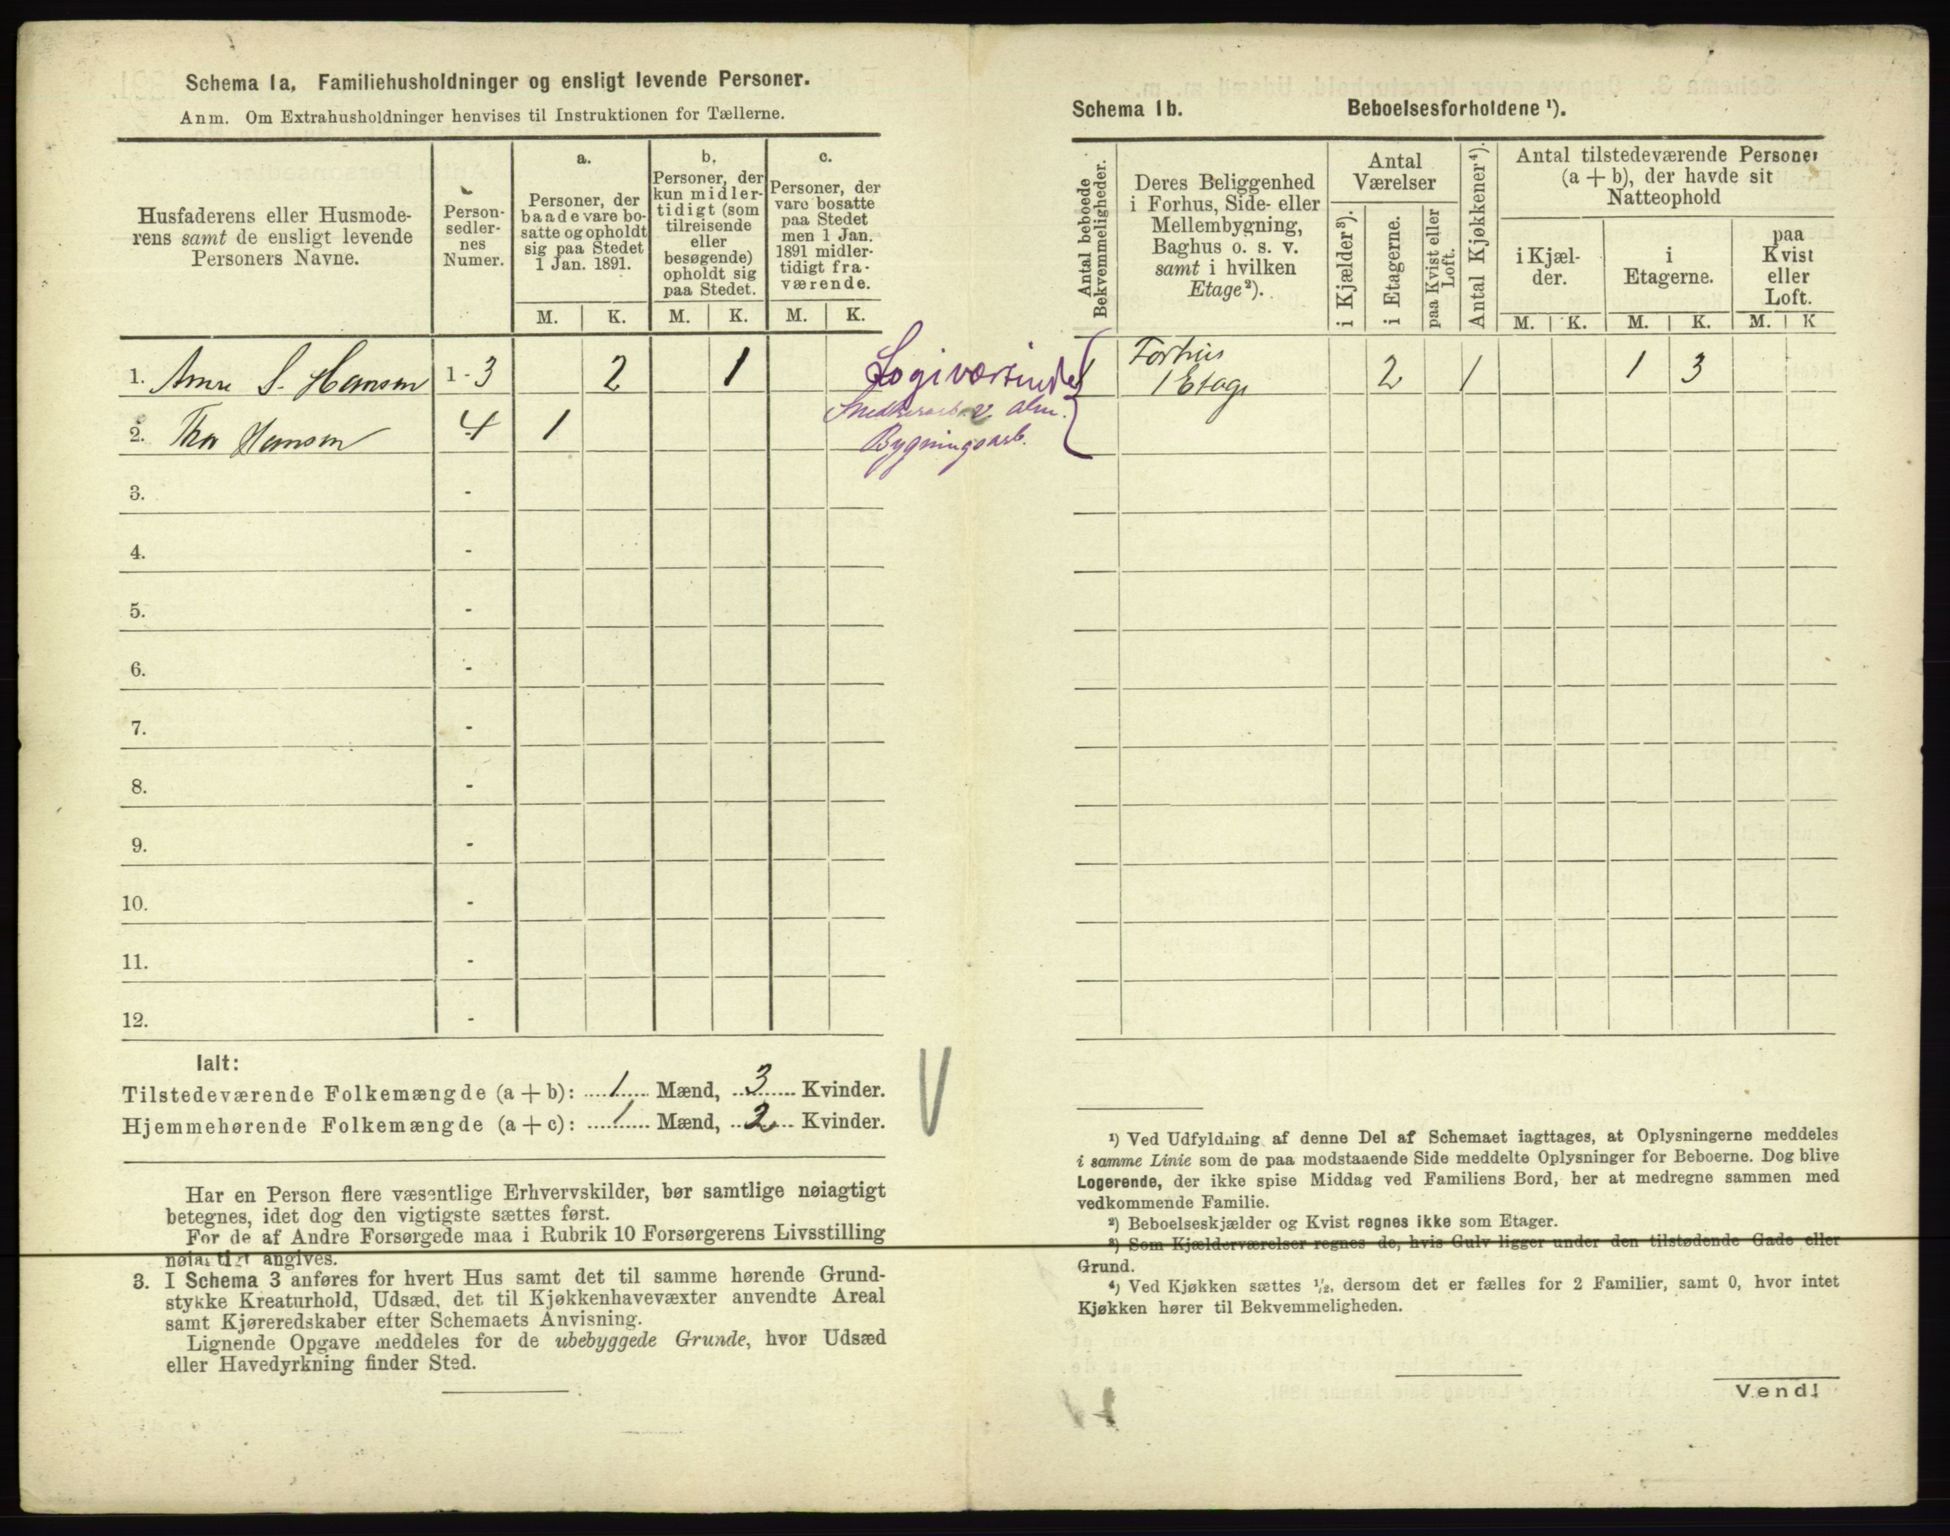 Schema 1a, Familiehusholdninger og ensligt levende Personer.
Anm. Om Extrahusholdninger henvises til Instruktionen for Tællerne.
Husfaderens eller Husmode-
rens samt de ensligt levende
Personers Navne.
Person-
sedler-
nes
Numer.
a.
Personer, der
baade vare bo-
satte og opholdt
sig paa Stedet
1 Jan. 1891.
b.
Personer, der
kun midler-
tidigt (som
tilreisende
eller
besøgende)
opholdt sig
paa Stedet.
c.
Personer, der
vare bosatte
paa Stedet
men 1 Jan.
1891 midler-
tidigt fra-
værende.
M. K. M. K. M. K.
1. Anne S. Hansen 1-3 2 1 Logiværtinde
2. Thor Hansen 4 1 Snedkerarb. v. alm.
Bygningsarb.
3. -
4. -
5. -
6. -
7. -
8. -
9. -
10. -
11. -
12. -
Ialt:
Tilstedeværende Folkemængde (a + b): 1 Mænd, 3 Kvinder.
Hjemmehørende Folkemængde (a + c): 1 Mænd, 2 Kvinder.
Har en Person flere væsentlige Erhvervskilder, bør samtlige nøiagtigt
betegnes, idet dog den vigtigste sættes først.
For de af Andre Forsørgede maa i Rubrik 10 Forsørgerens Livsstilling
nøiagtigt angives.
3. I Schema 3 anføres for hvert Hus samt det til samme hørende Grund-
stykke Kreaturhold, Udsæd, det til Kjøkkenhavevæxter anvendte Areal
samt Kjøreredskaber efter Schemaets Anvisning.
Lignende Opgave meddeles for de ubebyggede Grunde, hvor Udsæd
eller Havedyrkning finder Sted.
Schema 1b. Beboelsesforholdene ¹).
Antal beboede
Bekvemmeligheder.
Deres Beliggenhed
i Forhus, Side- eller
Mellembygning,
Baghus o. s. v.
samt i hvilken
Etage²).
Antal
Værelser
i Kjælder³).
i Etagerne.
paa Kvist eller
Loft.
Antal Kjøkkener⁴).
Antal tilstedeværende Personer
(a + b), der havde sit
Natteophold
i Kjæl-
der.
i
Etagerne.
paa
Kvist
eller
Loft.
M. K. M. K. M. K
1 Forhus
1 Etage 2 1 1 3
¹) Ved Udfyldning af denne Del af Schemaet iagttages, at Oplysningerne meddeles
i samme Linie som de paa modstaaende Side meddelte Oplysninger for Beboerne. Dog blive
Logerende, der ikke spise Middag ved Familiens Bord, her at medregne sammen med
vedkommende Familie.
²) Beboelseskjælder og Kvist regnes ikke som Etager.
³) Som Kjælderværelser regnes de, hvis Gulv ligger under den tilstødende Gade eller
Grund.
⁴) Ved Kjøkken sættes ½, dersom det er fælles for 2 Familier, samt 0, hvor intet
Kjøkken hører til Bekvemmeligheden.
Vend!